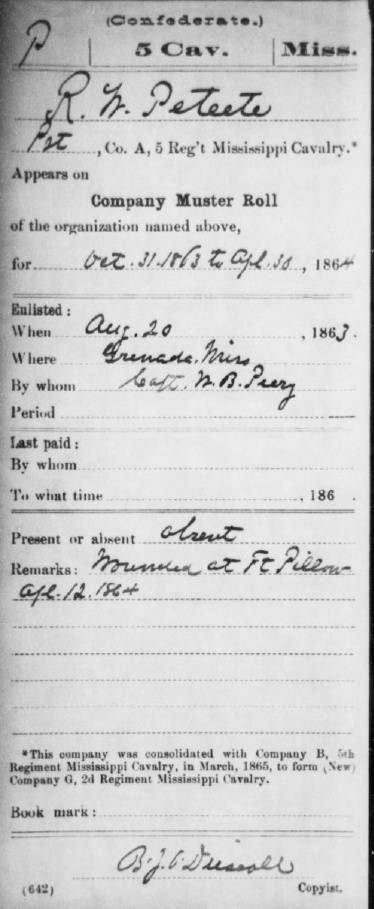 (Confederate.)
P 5 Cav. Miss.
R. W. Peteete
Pvt, Co. A, 5 Reg't Mississippi Cavalry.*
Appears on
Company Muster Roll
of the organization named above,
for Oct. 31. 1863 to Apl. 30, 1864
Enlisted:
When Aug. 20, 1863.
Where Grenada. Miss
By whom Capt. W. B. Peery
Period
Last paid:
By whom
To what time , 186 .
Present or absent absent
Remarks: Wounded at Ft Pillow
Apl. 12. 1864
*This company was consolidated with Company B, 5th
Regiment Mississippi Cavalry, in March, 1865, to form (New)
Company G, 2d Regiment Mississippi Cavalry.
Book mark:
B. J. O'Driscoll
(642) Copyist.